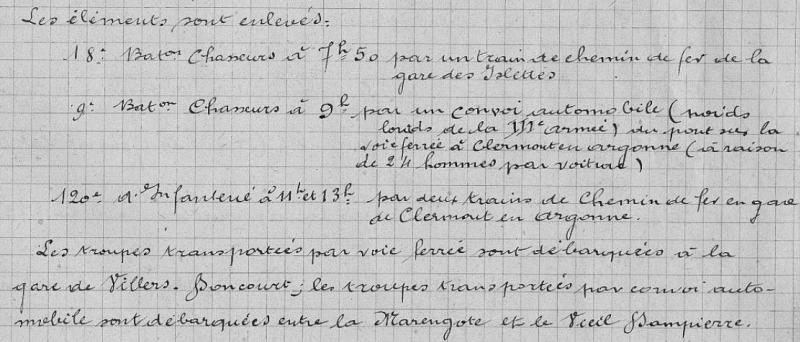 Les éléments sont enlevés:
18e Baton Chasseurs à 7h50 par un train de chemin de fer de la
gare des Islettes
9e Baton Chasseurs à 9h par un convoi automobile (poids
lourds de la IIIe armée) du pont sur la
voie ferrée à Clermont en argonne (à raison
de 24 hommes par voiture)
120e d'Infanterie à 11h et 13h par deux trains de Chemin de fer en gare
de Clermont en argonne.
Les troupes transportées par voie ferrée sont débarquées à la
gare de Villers-Doncourt; les troupes transportées par convoi auto-
mobile sont débarquées entre la Marengote et le Vieil Dampierre.